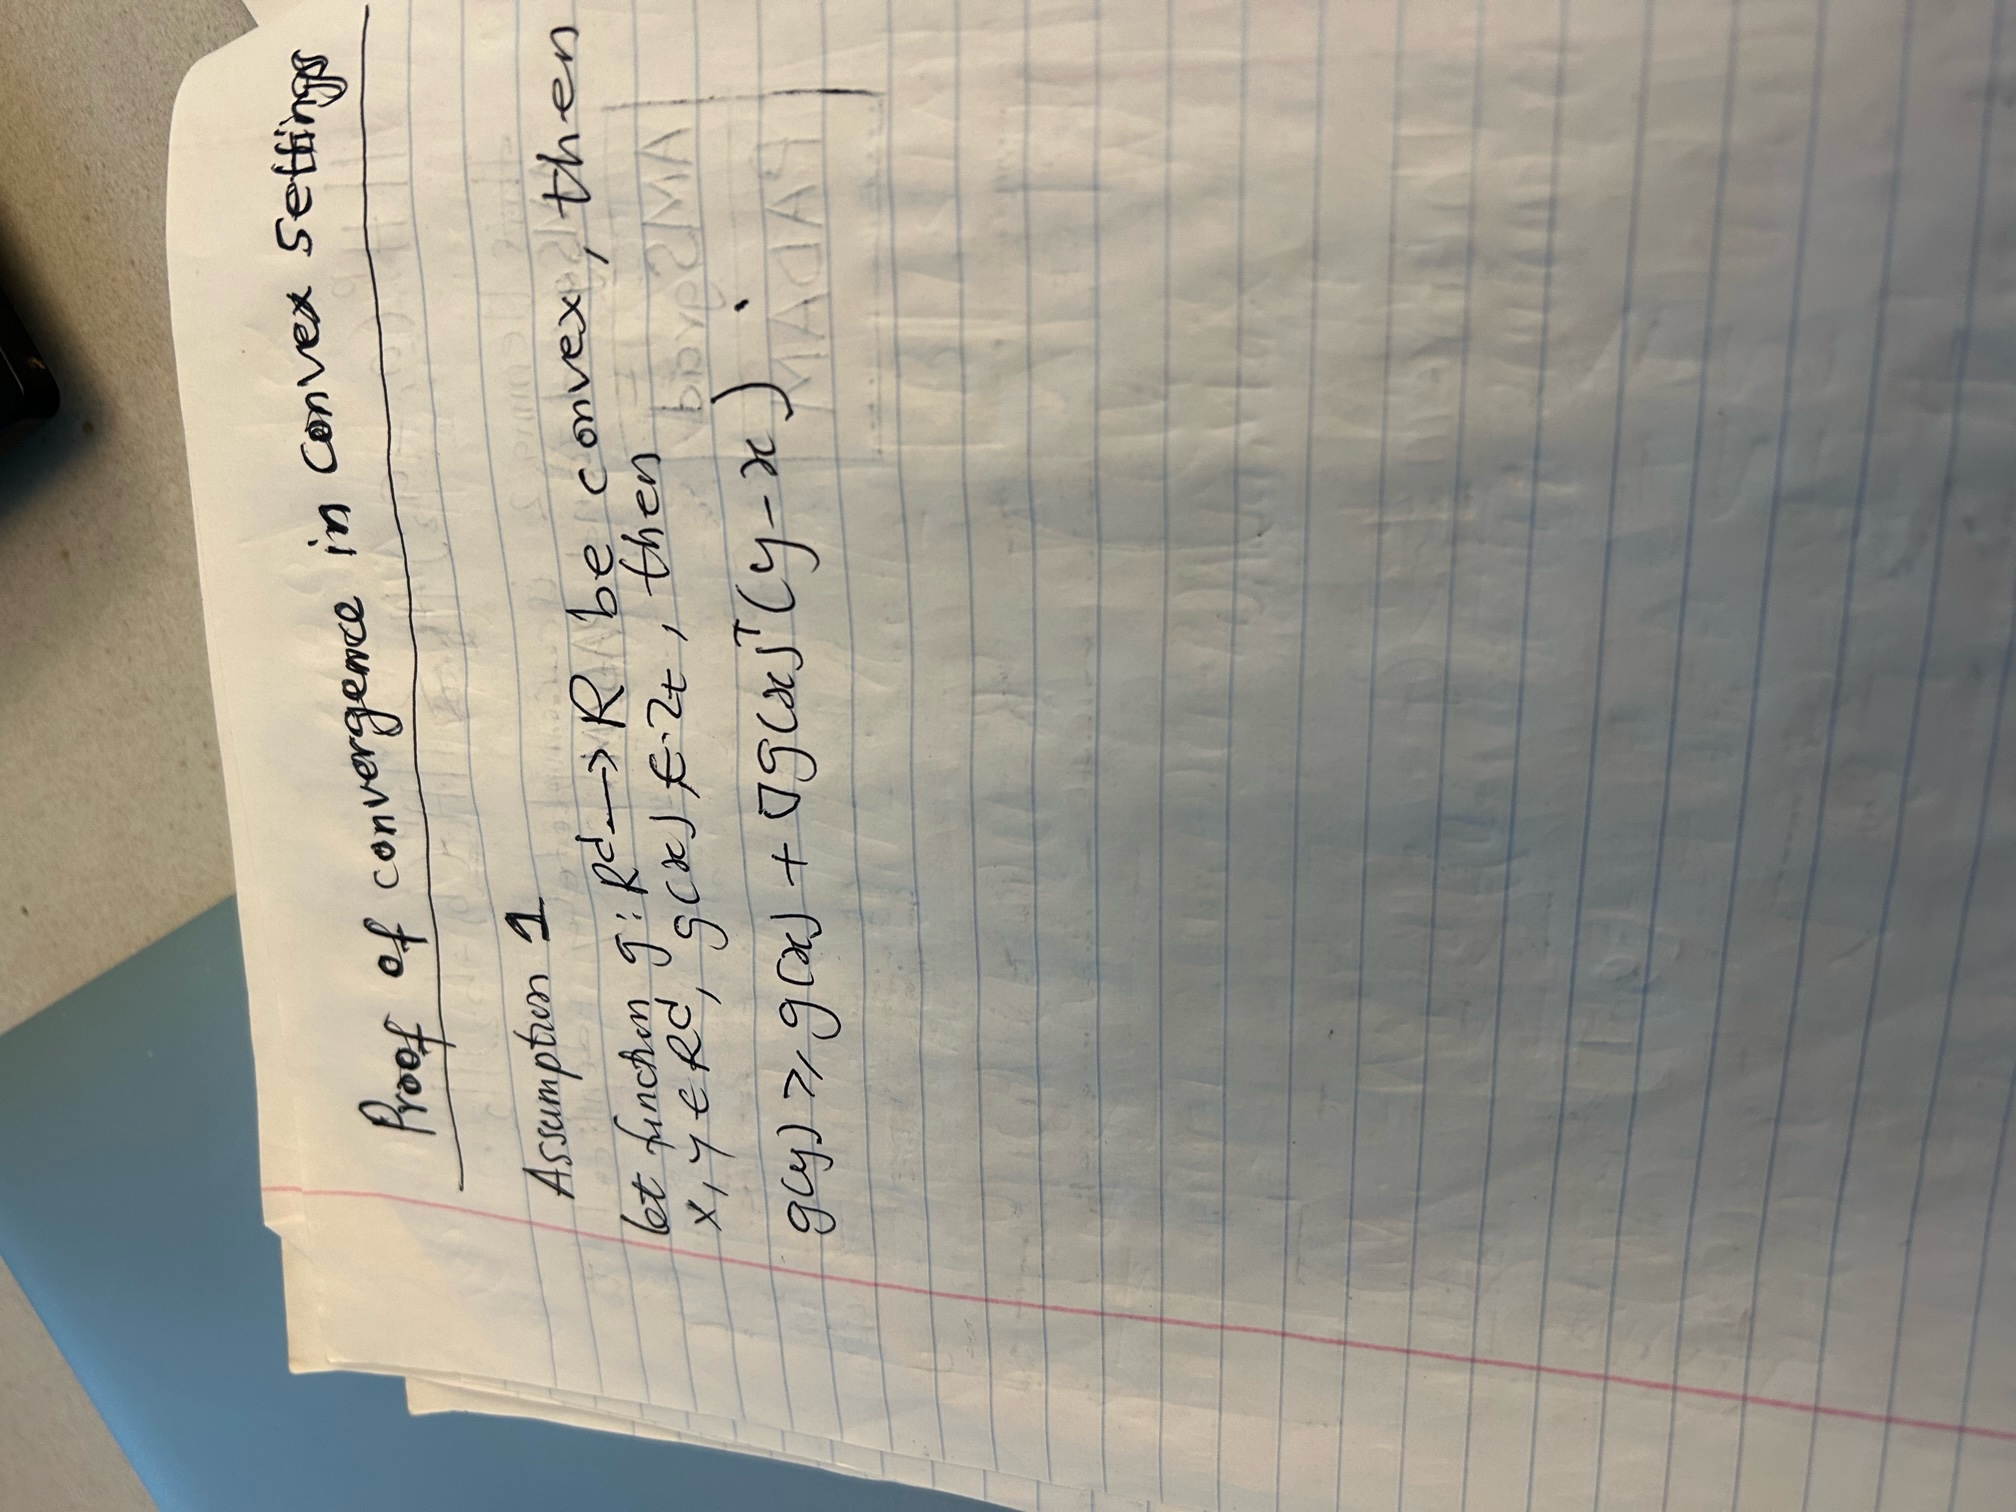 Proof of convergence in convex settings
Assumption 1
let function g: R^d → R be convex, then
x, y ∈ R^d, g(x) ∈ Zt, then
g(y) ≥ g(x) + ∇g(x)^T (y-x).
AMSgrad
PADAM